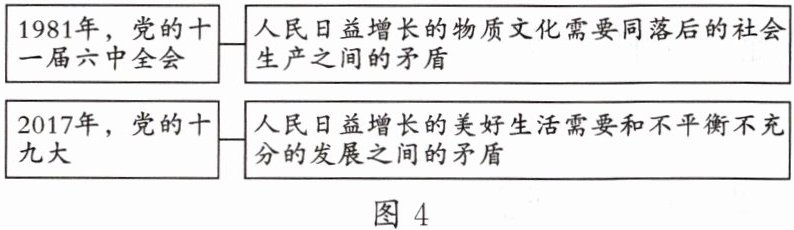 1981年，党的十
一届六中全会
人民日益增长的物质文化需要同落后的社会
生产之间的矛盾
2017年，党的十
九大
人民日益增长的美好生活需要和不平衡不充
分的发展之间的矛盾
图 4